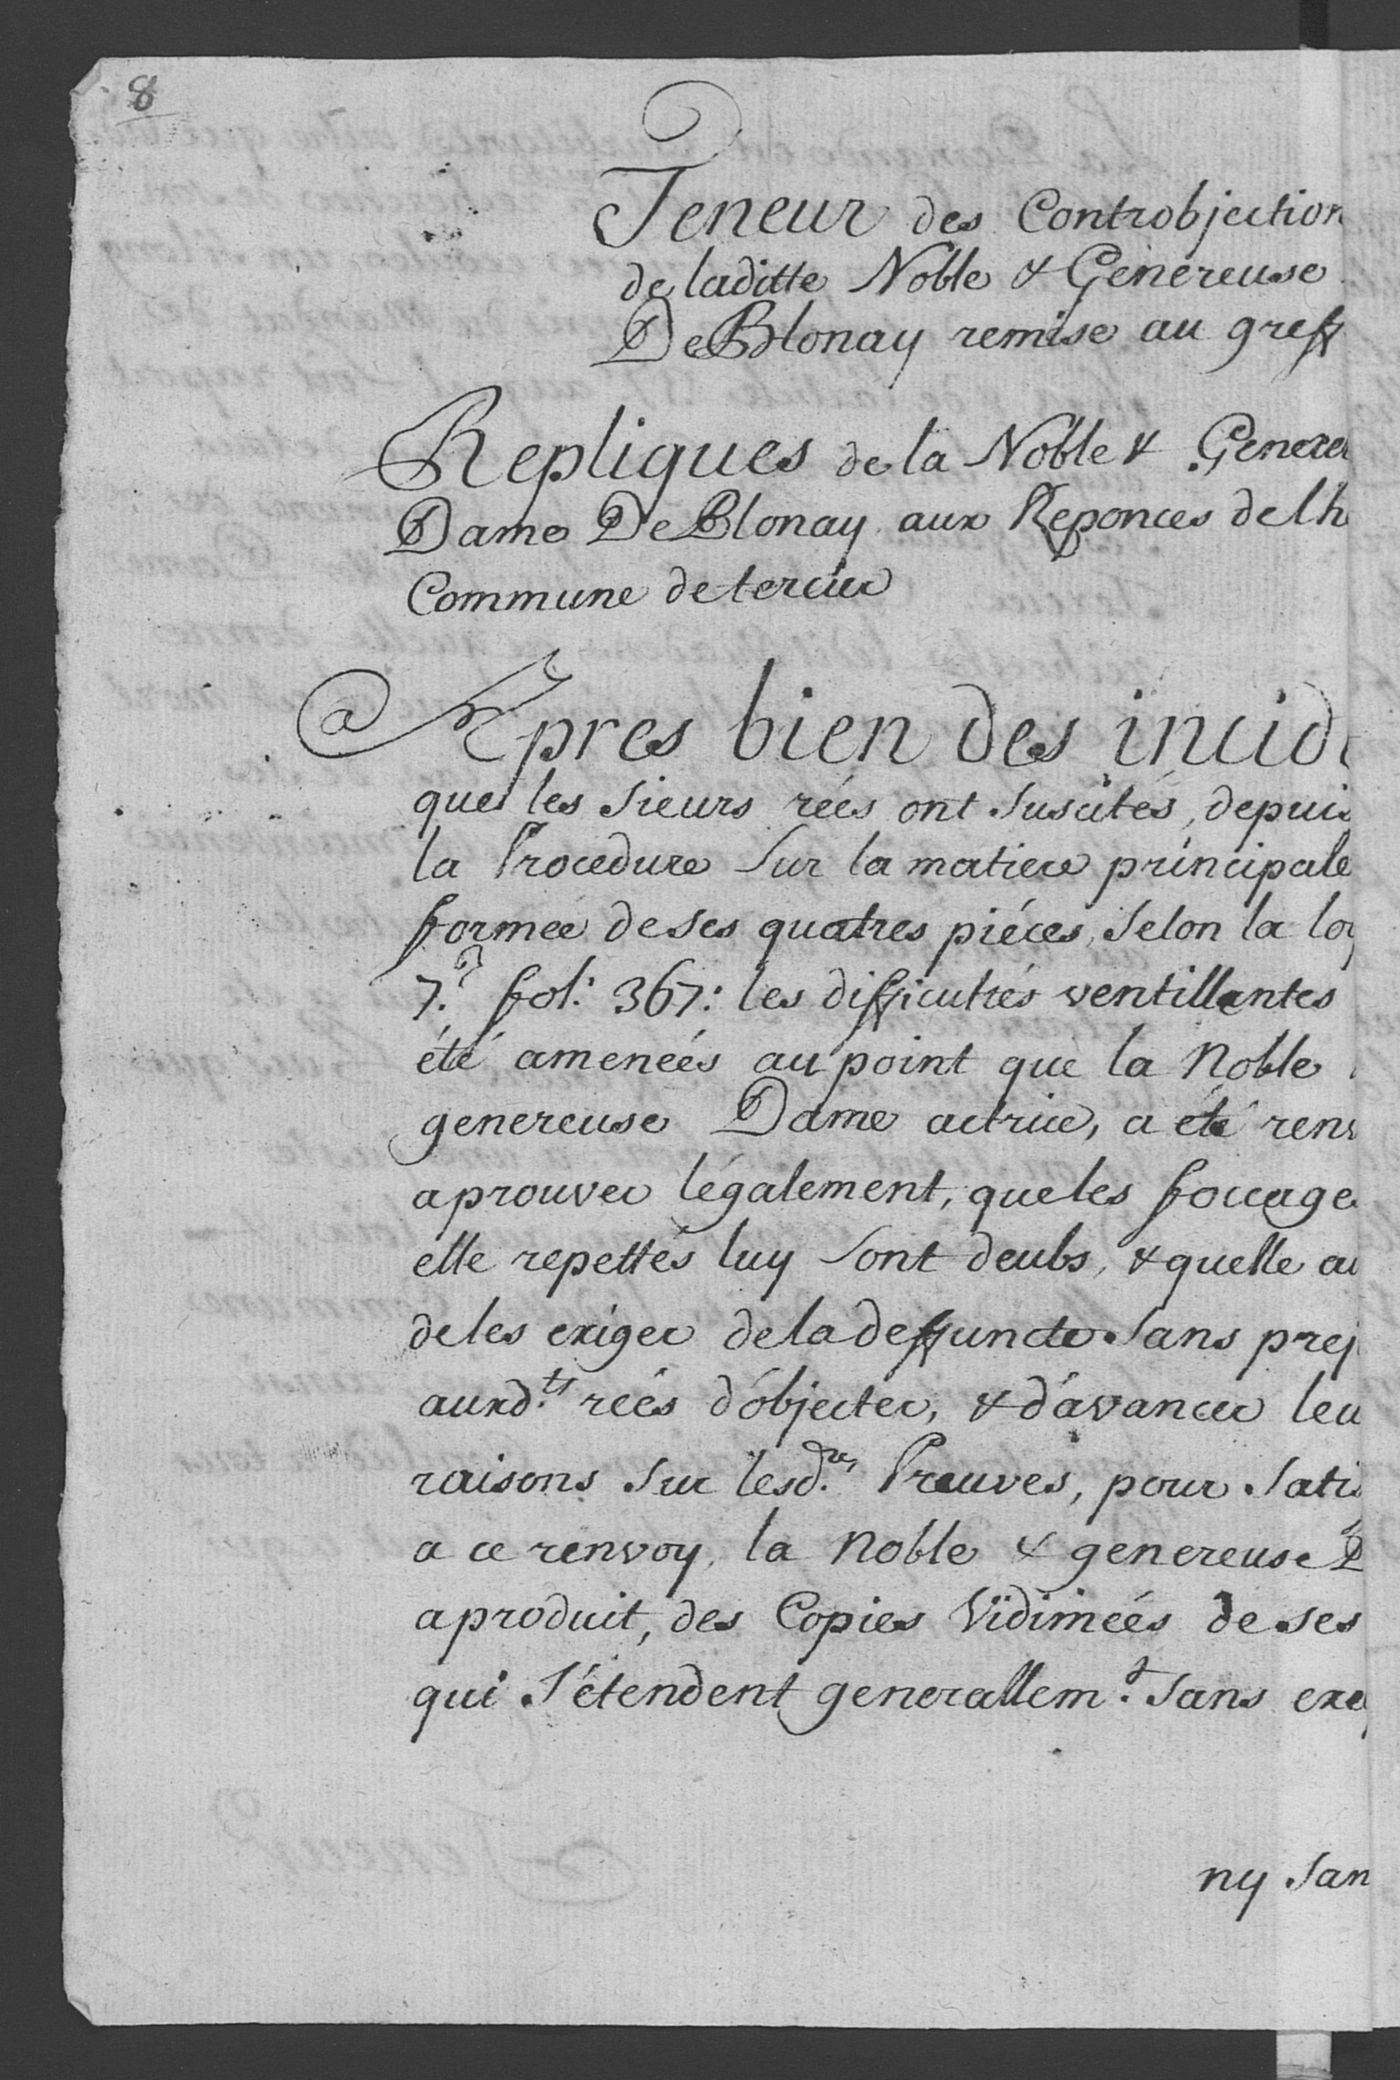 8
Teneur des Controbjection
de laditte Noble & Genéreuse
De Blonay remise au greff
Repliques de la Noble & Genere
Dame De Blonay aux Reponces de lh
Commune de tercier
Apres bien des incid
que les Sieurs rées ont Suscités, depuis
la Procedure Sur la matiere principale
formeé de ses quatres piéces, Selon la loy
7.e fol: 367: les difficultés ventillantes
été ameneés au point que la Noble
genereuse Dame actrice, a été renv
aprouver légalement, que les foccage
elle repettés luy Sont deubs, & quelle au
de les exiger de la deffuncte Sans prej
auxd.ts reés d'objecter, & d'avancer leu
raisons Sur lesd.tes Preuves, pour Satis
a ce renvoy, la Noble & genereuse D
a produit, des Copies Vidimeés de ses
qui S'étendent generallem.t Sans exe
ny San